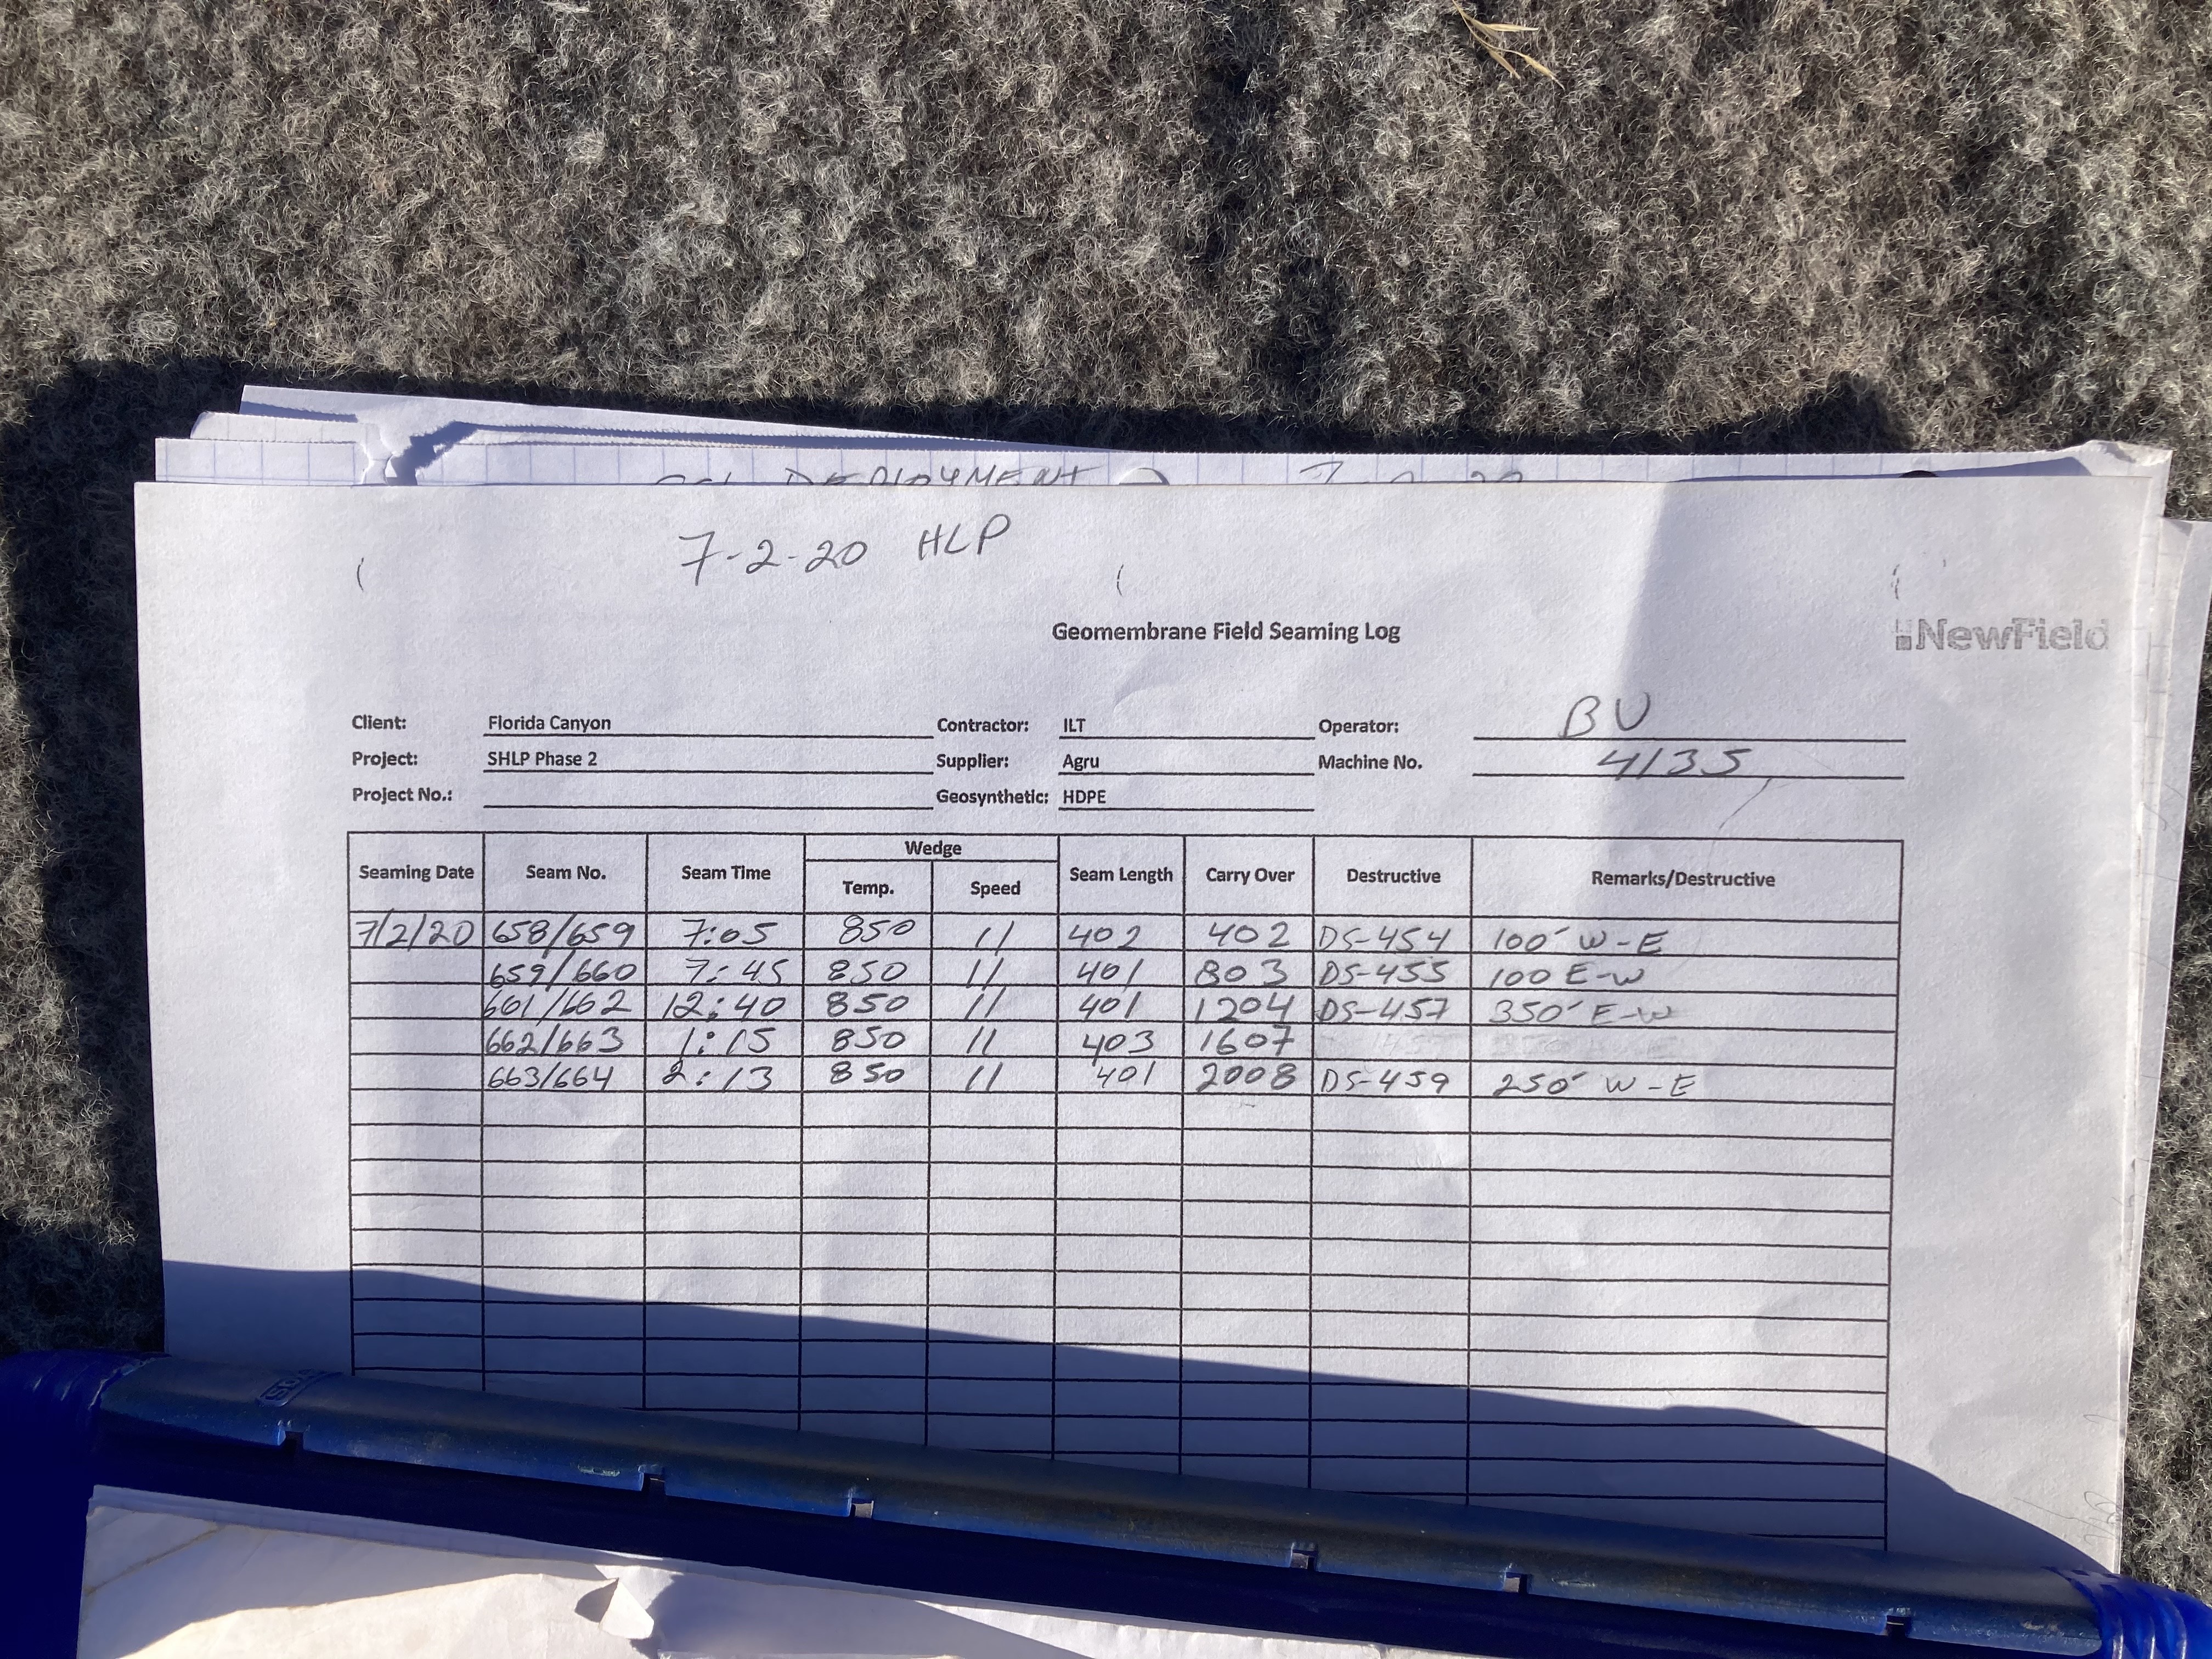 DEPLOYMENT
7-2-20 HLP
Geomembrane Field Seaming Log
NewField
Client: Florida Canyon Contractor: ILT Operator: BU
Project: SHLP Phase 2 Supplier: Agru Machine No. 4135
Project No.: Geosynthetic: HDPE
Wedge
Seaming Date Seam No. Seam Time Temp. Speed Seam Length Carry Over Destructive Remarks/Destructive
7/2/20 658/659 7:05 850 11 402 402 DS-454 100' W-E
659/660 7:45 850 11 401 803 DS-455 100 E-W
661/662 12:40 850 11 401 1204 DS-457 350' E-W
662/663 1:15 850 11 403 1607
663/664 2:13 850 11 401 2008 DS-459 250' W-E